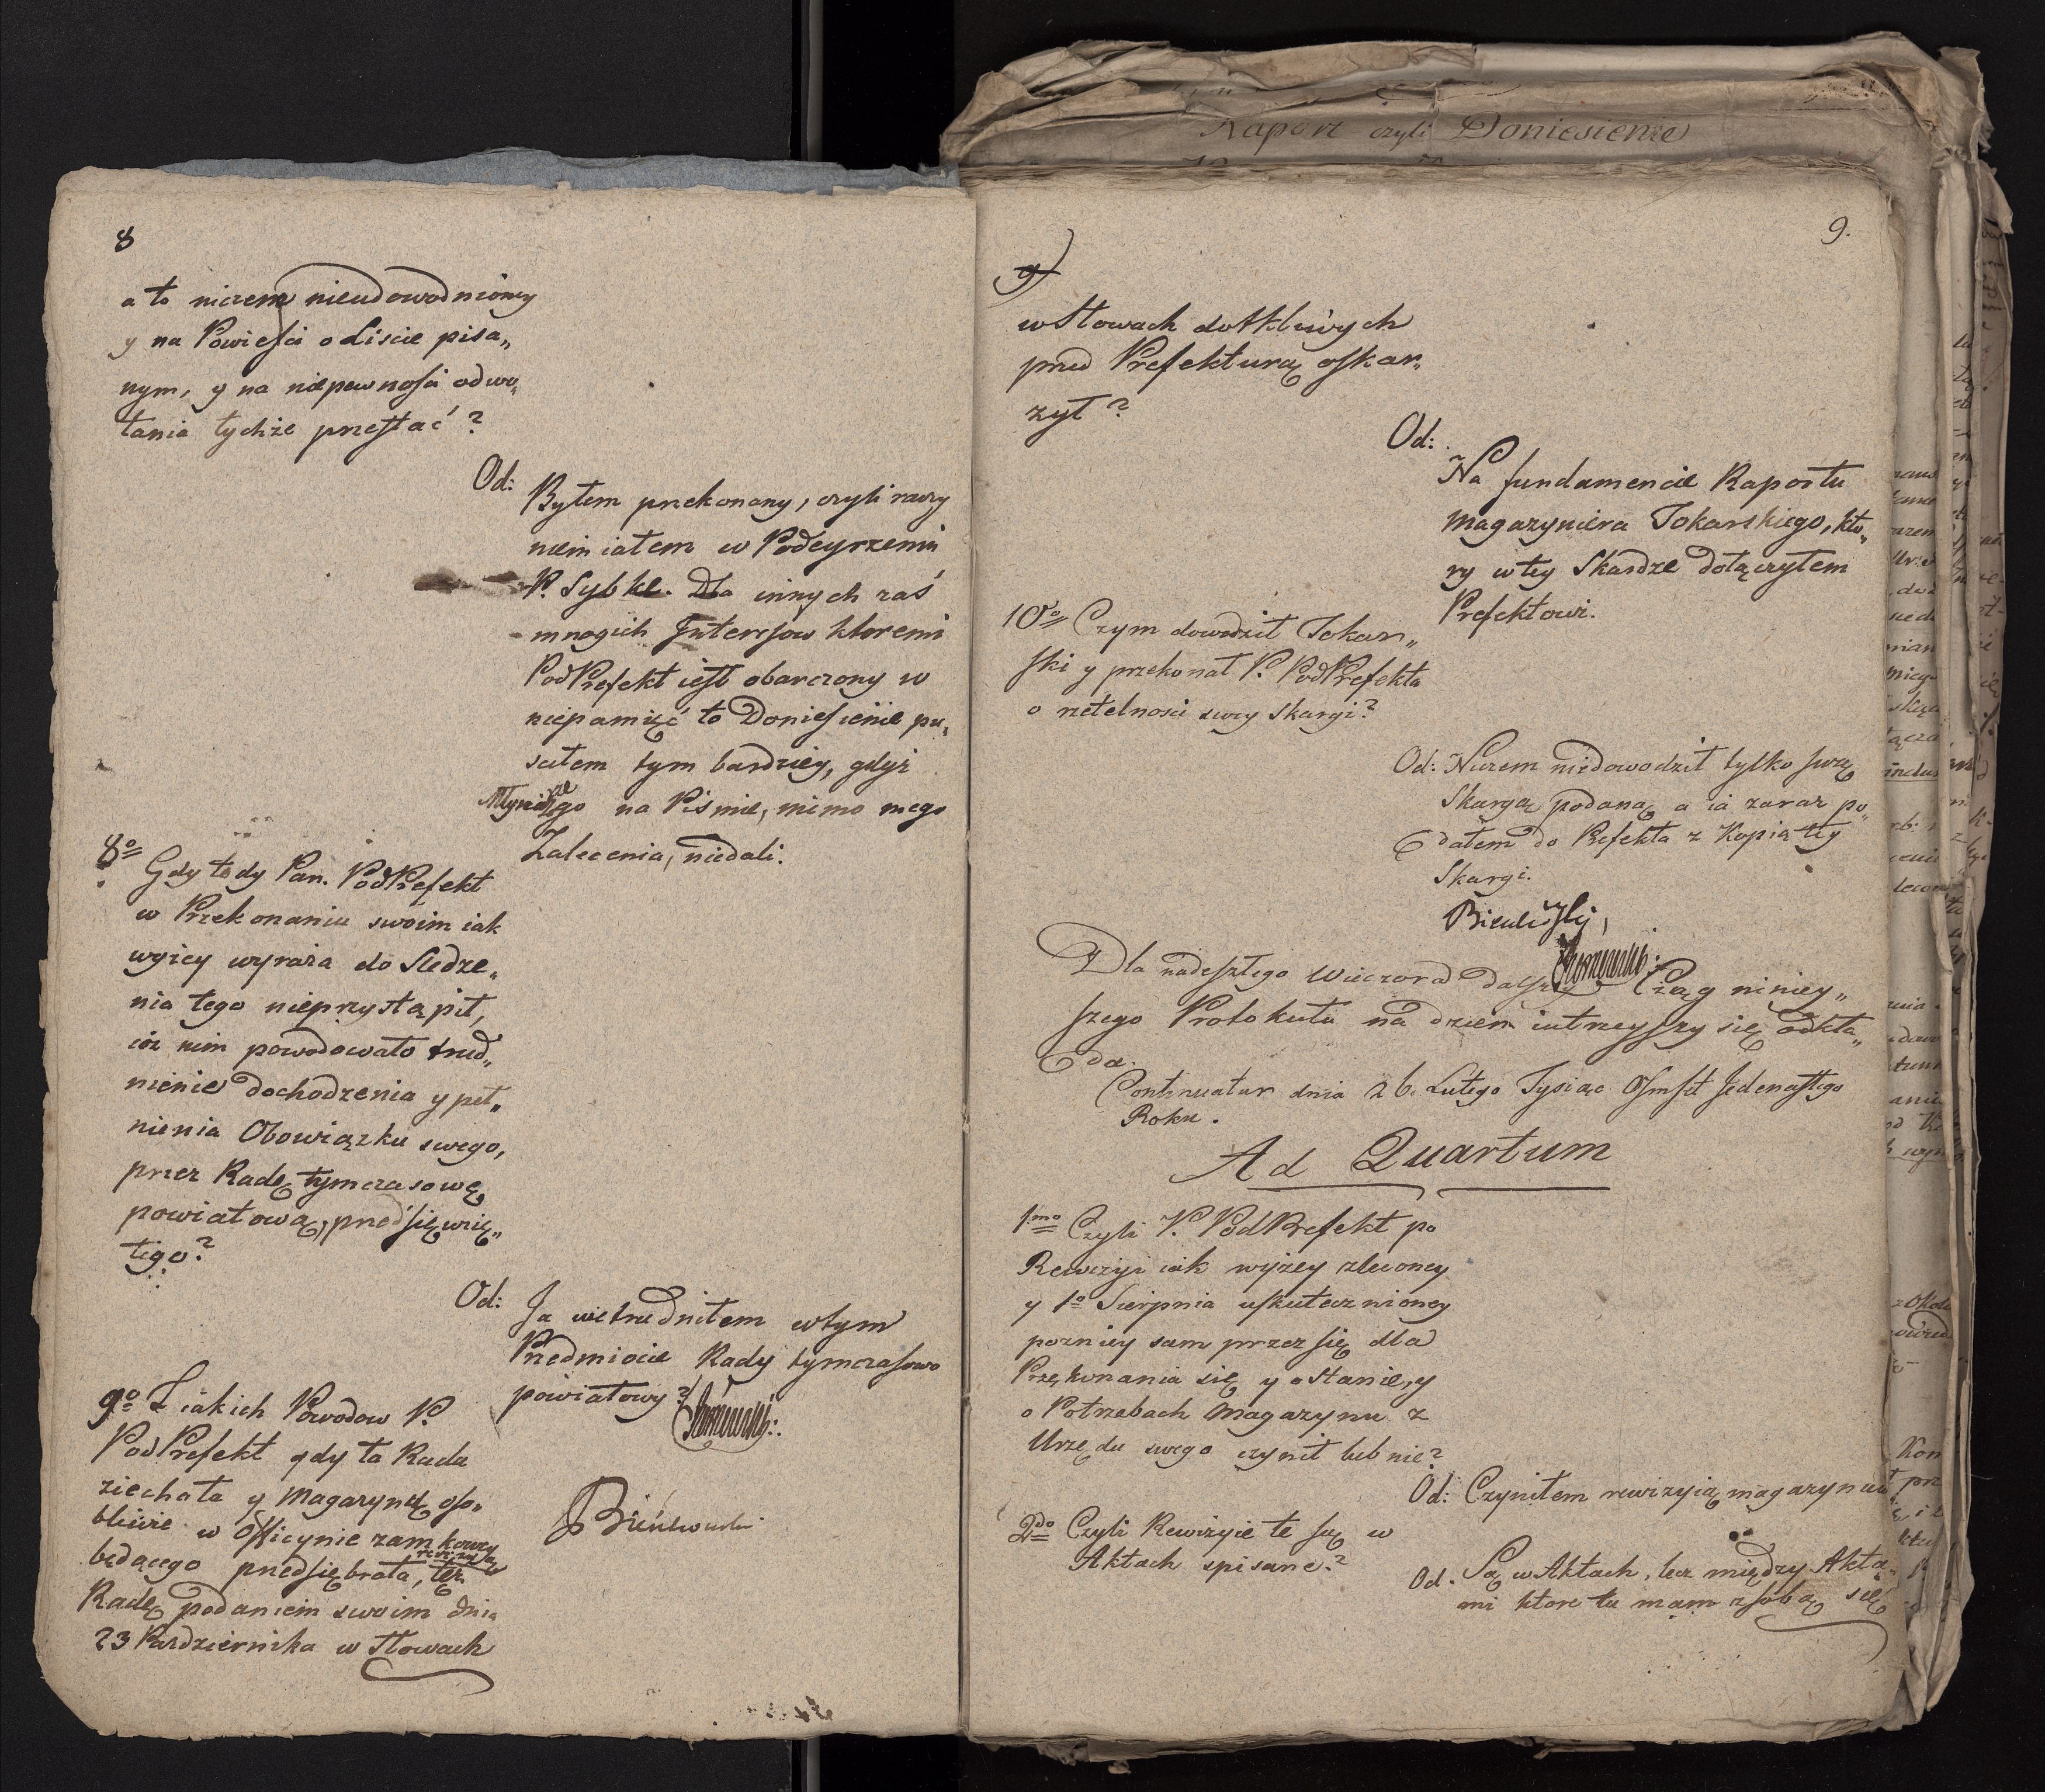 8
a to niczem nieudowodnioney
y na Powieści o Liscie pisa„
nym, y na niepewności odwo„
łania tychże przestać?
Od: Byłem przekonany, czyli raczy
niemiałem w Podeyrzeniu
P. Sybke. Dla innych zaś
mnogich Interesow ktoremi
PodPrefekt iest obarczony w
niepamięć to Doniesienie pu„
sciłem tym bardziey, gdyż
go na Pismie, mimo mego
Zalecenia, niedali.
8o Gdy tedy Pan. PodPrefekt
w Przekonaniu swoim iak
wyżey wyraża do sledze„
nia tego nieprzystąpił,
cóż nim powodowało trud„
nienie dochodzenia y peł„
nienia Obowiązku swego,
przez Radę tymczasowę
powiatową, przedsięwzię„
tego?
Od: Ja nietrudniłem wtym
Przedmiocie Rady tymczasowo
powiatowy?
9o Z iakich Powodow P.
PodPrefekt gdy ta Rada
ziechała y Magazynu oso„
bliwie w Officynie zamkowey
będącego przedsiębrała rewizyą, też
Radę podaniem swoim dnia
23 Pazdziernika w słowach
Raport czyli Doniesienie
9.
9)
w słowach dotkliwych
przed Prefekturą oskar„
żył?
Od:
Na fundamencie Raportu
Magazyniera Tokarskiego, kto„
ry w tey Skardze dołączyłem
Prefektowi.
10o Czym dowodził Tokar„
ski y przekonał P. PodPrefekta
o rzetelnosci swey skargi?
Od: Niczem niedowodził tylko swę
Skargę podaną a ia zaraz po„
dałem do Prefekta z Kopią tey
Skargi.
Dla nadeszłego Wieczora dalszy Ciąg niniey„
szego Protokułu na dzien iutrzeyszy się odkła„
da.
Continuatur dnia 26. Lutego Tysiąc Osmset Jedenastego
Roku.
Ad Quartum
1mo Czyli P. PodPrefekt po
Rewizyi iak wyżey zleconey
y 1o Sierpnia uskutecznioney
pozniey sam przez się dla
Przekonania się y o stanie, y
o Potrzebach Magazynu z
Urzędu swego czynił lub nie?
Od: Czyniłem rewizyią magazynu
2do Czyli Rewizyie te są w
Aktach spisane?
Od. Są w Aktach, lecz między Akta„
mi ktore tu mam z sobą się